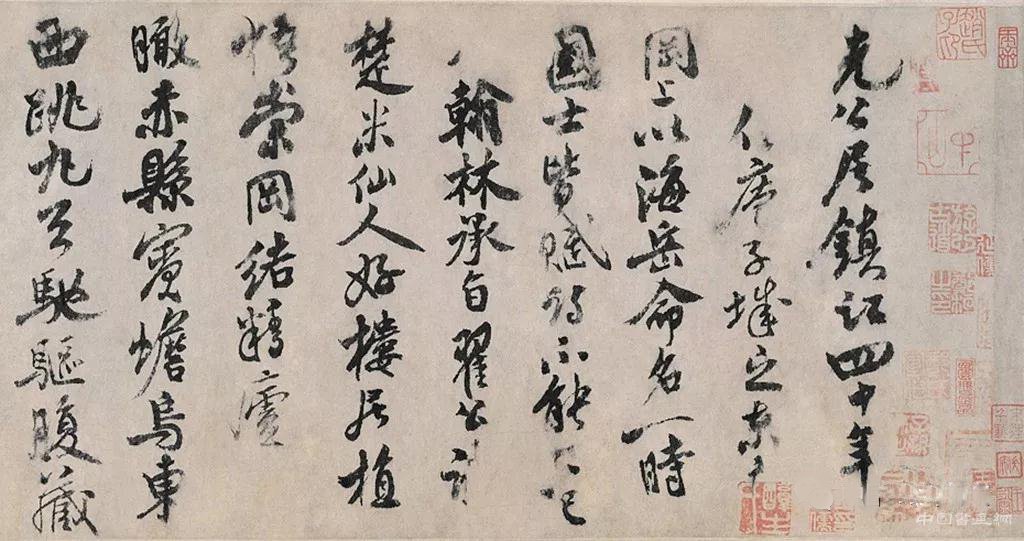 先公居鎮江四十年
作庵于城之東
岡上以海岳命名一時
國士皆賦詩不能
翰林承旨翟公詩
楚米仙人好樓居植
梧崇岡結精廬
瞰赤縣賓蟾烏東
西跳丸馳驅腹藏
中国書画網